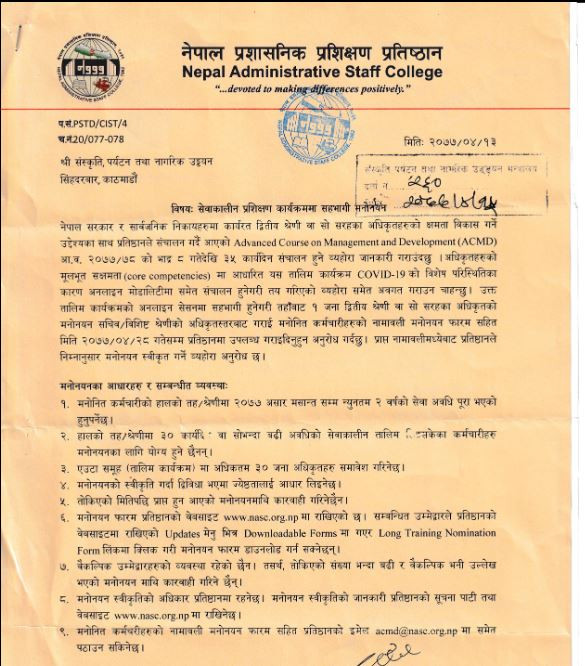 नेपाल प्रशासनिक प्रशिक्षण प्रतिष्ठान
Nepal Administrative Staff College
"...devoted to making differences positively."
प.सं.PSTD/CIST/4
च.नं.20/077-078
मितिः २०७७/०४/१३
श्री संस्कृति, पर्यटन तथा नागरिक उड्डयन
सिंहदरवार, काठमाडौं
संस्कृति पर्यटन तथा नागरिक उड्डयन मन्त्रालय
दर्ता नं
विषयः सेवाकालीन प्रशिक्षण कार्यक्रममा सहभागी मनोनयन
नेपाल सरकार र सार्वजनिक निकायहरुमा कार्यरत द्वितीय श्रेणी वा सो सरहका अधिकृतहरुको क्षमता विकास गर्ने
उद्देश्यका साथ प्रतिष्ठानले संचालन गर्दै आएको Advanced Course on Management and Development (ACMD)
आ.व. २०७७/७८ को भाद्र ८ गतेदेखि ३५ कार्यदिन संचालन हुने व्यहोरा जानकारी गराउँदछु ।अधिकृतहरुको
मूलभूत सक्षमता (core competencies) मा आधारित यस तालिम कार्यक्रम COVID-19 को विशेष परिस्थितिका
कारण अनलाइन मोडालिटीमा समेत संचालन हुनेगरी तय गरिएको व्यहोरा समेत अवगत गराउन चाहन्छु। उक्त
तालिम कार्यक्रमको अनलाइन सेसनमा सहभागी हुनेगरी तहाँबाट १ जना द्वितीय श्रेणी वा सो सरहका अधिकृतको
मनोनयन सचिव/विशिष्ट श्रेणीको अधिकृतस्तरबाट गराई मनोनित कर्मचारीहरुको नामावली मनोनयन फारम सहित
मिति २०७७/०४/२८ गतेसम्म प्रतिष्ठानमा उपलब्ध गराइदिनुहुन अनुरोध गर्दछु। प्राप्त नामावलीमध्येबाट प्रतिष्ठानले
निम्नानुसार मनोनयन स्वीकृत गर्ने व्यहोरा अनुरोध छ।
मनोनयनका आधारहरु र सम्बन्धीत व्यवस्थाः
१. मनोनित कर्मचारीको हालको तह/श्रेणीमा २०७७ असार मसान्त सम्म न्युनतम २ वर्षको सेवा अवधि पूरा भएको
हुनुपर्नेछ।
२. हालको तह/श्रेणीमा ३० वा सोभन्दा बढी अवधिको सेवाकालीन तालिम कर्मचारीहरु
मनोनयनका लागि योग्य हुने छैनन्।
३. एउटा समूह (तालिम कार्यक्रम) मा अधिकतम ३० जना अधिकृतहरु समावेश गरिनेछ।
४. मनोनयनको स्वीकृत गर्दा द्विविधा भएमा ज्येष्ठतालाई आधार लिइनेछ।
५. तोकिएको मितिपछि प्राप्त हुन आएको मनोनयनमाथि कारवाही गरिनेछैन।
६. मनोनयन फारम प्रतिष्ठानको वेबसाइट www.nasc.org.np मा राखिएको छ। सम्बन्धित उम्मेद्वारले प्रतिष्ठानको
वेबसाइटमा राखिएको Updates मेनु भित्र Downloadable Forms मा गएर Long Training Nomination
Form लिंकमा क्लिक गरी मनोनयन फारम डाउनलोड गर्न सक्नेछन्।
७. वैकल्पिक उम्मेद्वारहरुको व्यवस्था रहेको छैन। तसर्थ, तोकिएको संख्या भन्दा बढी र वैकल्पिक भनी उल्लेख
भएको मनोनयन माथि कारवाही गरिने छैन्।
८. मनोनयन स्वीकृतिको अधिकार प्रतिष्ठानमा रहनेछ। मनोनयन स्वीकृतिको जानकारी प्रतिष्ठानको सूचना पाटी तथा
वेबसाइट www.nasc.org.np मा राखिनेछ।
९. मनोनित कर्मचारीहरुको नामावली मनोनयन फारम सहित प्रतिष्ठानको इमेल acmd@nasc.org.np मा समेत
पठाउन सकिनेछ।